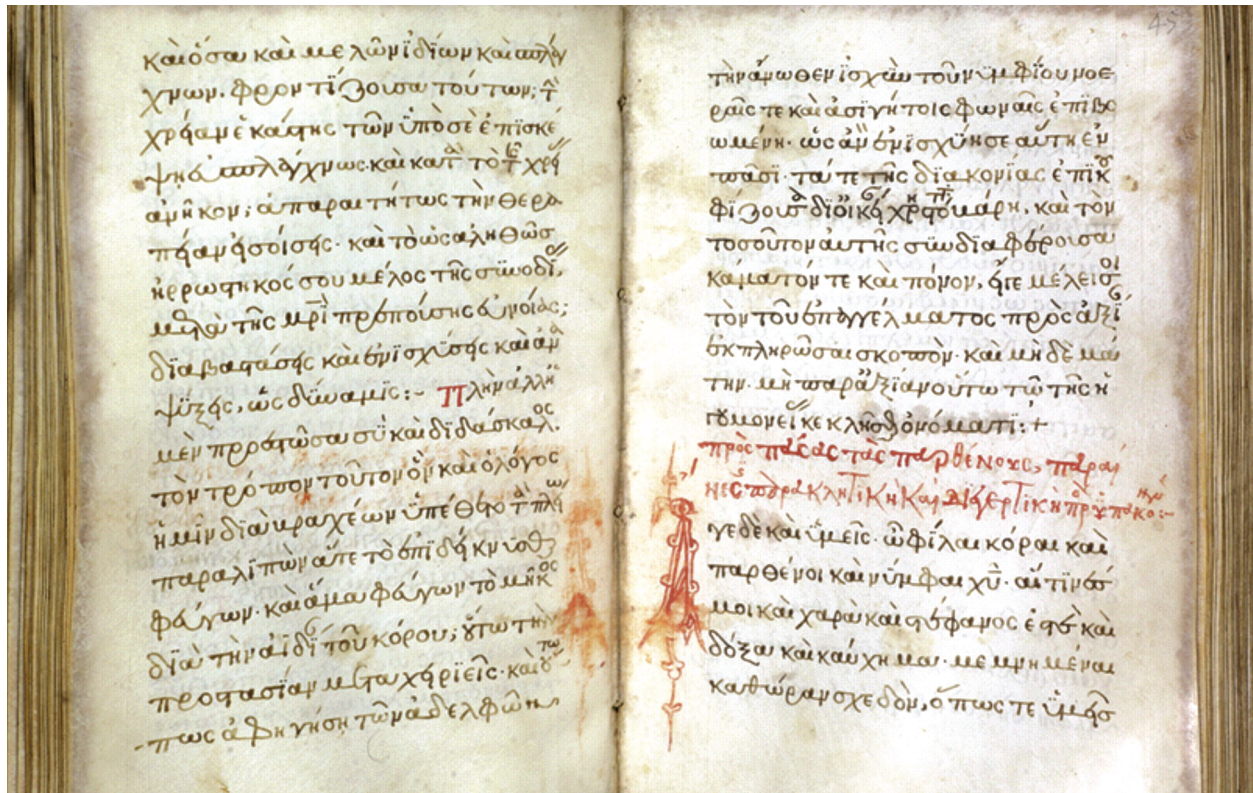 καὶ ὅσα καὶ μελῶν ἰδίων καὶ σπλάγ
χνων. φροντίζουσα τούτων; τὴν
χρείαν ἑκάστης τῶν ὑπὸ σὲ ἐπισκέ
ψῃ εὐσπλάγχνως. καὶ κατὰ τὸ τῇ χρείᾳ
ἀνῆκον; ἀπαραιτήτως τὴν θερα
πείαν εἰσοίσεις. καὶ τὸ ὡς ἀληθῶς
ἠρρωστηκός σου μέλος τῆς συνοδίας,
μετὰ τῆς μητρὶ πρεπούσης εὐνοίας;
διαβαστάσεις καὶ ἐνισχύσεις καὶ ἀνα
ψύξεις, ὡς δύναμις:- Πλὴν ἀλλ' ἡ
μὲν προεστῶσα σὺ καὶ διδάσκαλος.
τὸν τρόπον τοῦτον ὃν καὶ ὁ λόγος
ἡμῖν διὰ βραχέων ὑπέθετο τὰ πλείω
παραλιπὼν ἅτε τὸ ἐπιδεικνύσθαι
φεύγων. καὶ ἅμα φεύγων τὸ μῆκος
διὰ τὴν ἀηδίαν τοῦ κόρου; οὕτω τὴν
προστασίαν μεταχειριεῖς. καὶ οὕτω
πως ἀφηγήσῃ τῶν ἀδελφῶν.
453
τὴν ἄνωθεν ἰσχὺν τοῦ νυμφίου νοε
ραῖς τε καὶ ἀσιγήτοις φωναῖς ἐπιβο
ωμένη. ὡς ἂν ἐνισχύῃ σε αὕτη ἐν
πᾶσι. τά τε τῆς διακονίας ἐπικου
φίζουσα
τοσοῦτον αὐτῆς σῦν διαφόροισα
κάματόν τε καὶ πόνον,
τὸν τοῦ ἐπαγγέλματος πρὸς ἀξίαν
ἐκπληρῶσαι σκοπὸν. καὶ μηδὲ μά
την. μὴ παραξίαν οὕτω τῷ τῆς ἡ
γουμονείᾳ κεκλῆσθαι ὀνόματι:+
πρὸς πάσας τὰς παρθένους, παραί
νεσις παρακλητικὴ καὶ διεγερτικὴ πρὸς ὑπακοήν:-
Ἄγε δὲ καὶ ὑμεῖς. ὦ φίλαι κόραι καὶ
παρθένοι καὶ νύμφαι χῦ. αἵτινές
μοι καὶ χαρὰ καὶ στέφανος ἐστὲ καὶ
δόξα καὶ καύχημα. μεμνημέναι
καθώραν σχεδὸν, ὅπως τε ὑμεῖς